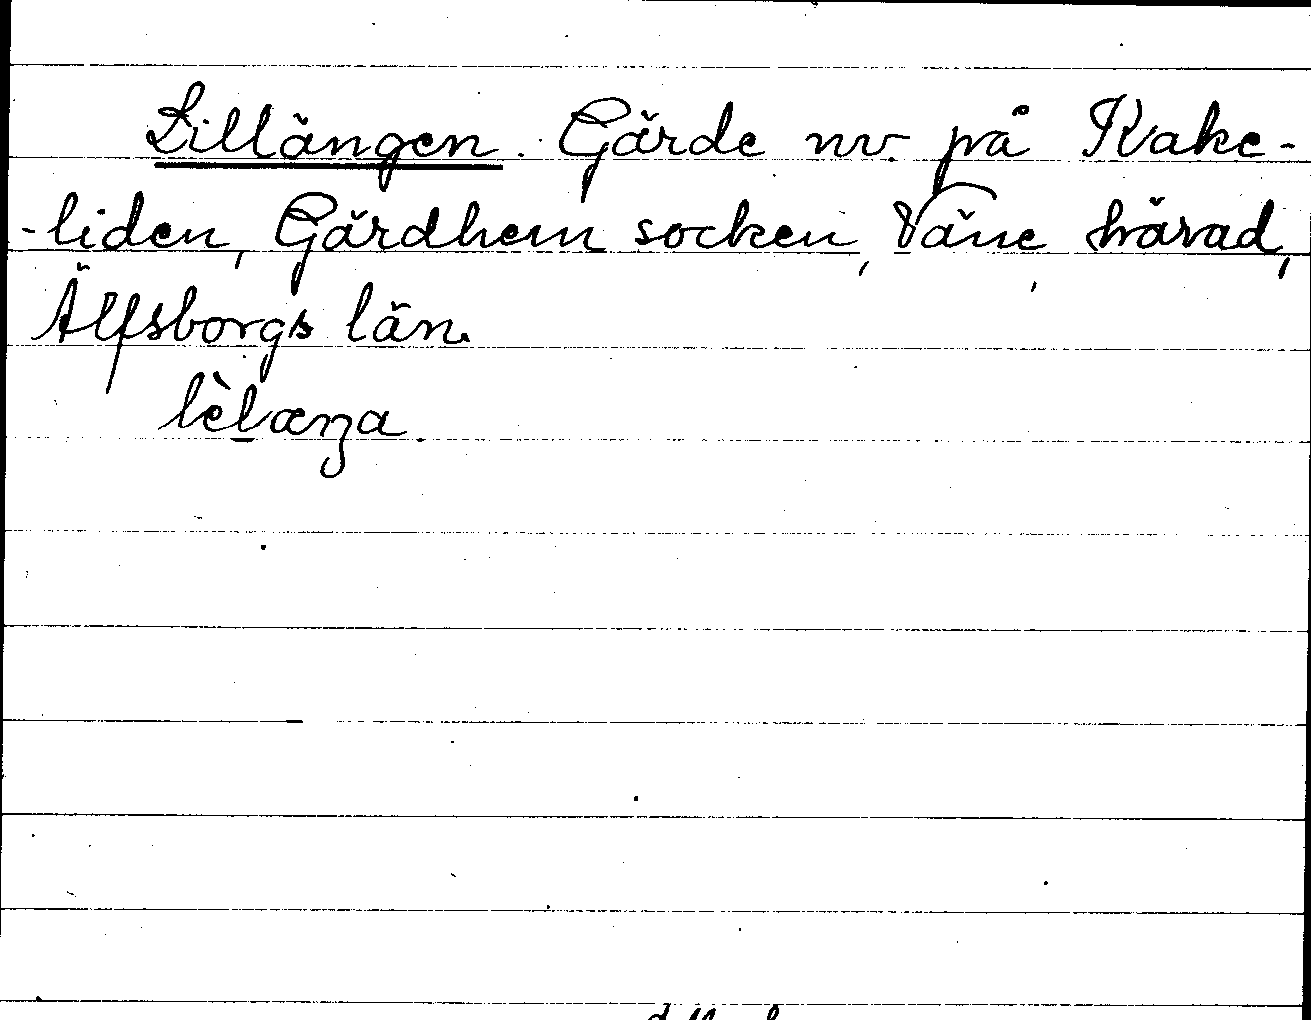 Lillängen. Gärde nv. på Kake-
-liden, Gärdhem socken, Väne härad,
Älfsborgs län.
lèlæŋa.